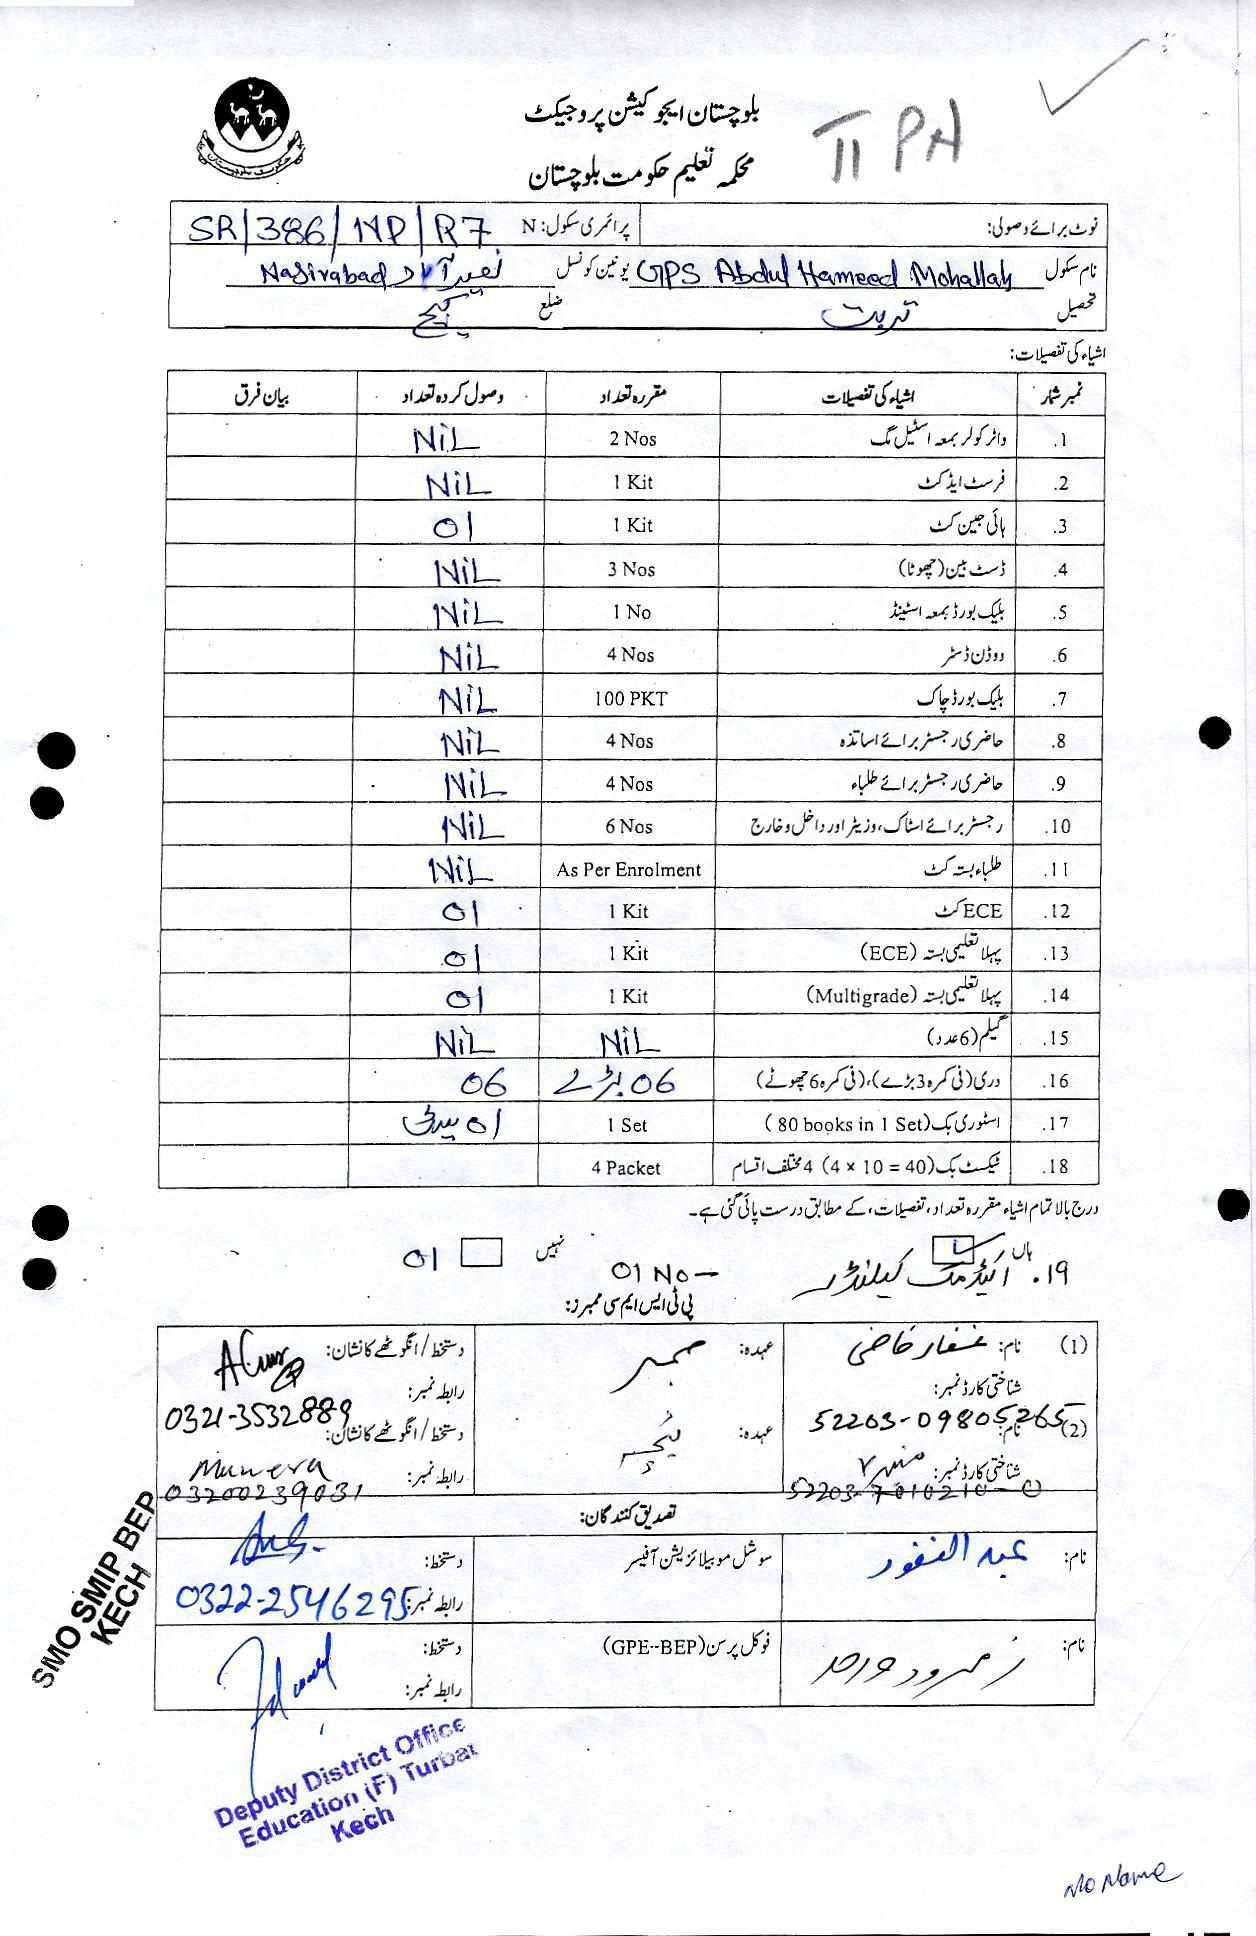 بلوچستان ایجوکیشن پروجیکٹ
محکمہ تعلیم حکومت بلوچستان
II PA
نوٹ برائے وصولی: پرائمری سکول: N SR/386/NP/R7
نام سکول GPS Abdul Hameed Mohallah یونین کونسل Nasirabad نصیرآباد
تحصیل تربت ضلع کیچ
اشیاء کی تفصیلات:
نمبر شمار اشیاء کی تفصیلات مقررہ تعداد وصول کردہ تعداد بیان فرق
1. واٹر کولر بمعہ اسٹیل مگ 2 Nos NiL
2. فرسٹ ایڈ کٹ 1 Kit NiL
3. ہائی جین کٹ 1 Kit 01
4. ڈسٹ بین (چھوٹا) 3 Nos NiL
5. بلیک بورڈ بمعہ اسٹینڈ 1 No NiL
6. ووڈن ڈسٹر 4 Nos NiL
7. بلیک بورڈ چاک 100 PKT NiL
8. حاضری رجسٹر برائے اساتذہ 4 Nos NiL
9. حاضری رجسٹر برائے طلباء 4 Nos NiL
10. رجسٹر برائے اسٹاک، وزیٹر اور داخل و خارج 6 Nos NiL
11. طلباء بستہ کٹ As Per Enrolment NiL
12. ECE کٹ 1 Kit 01
13. پہلا تعلیمی بستہ (ECE) 1 Kit 01
14. پہلا تعلیمی بستہ (Multigrade) 1 Kit 01
15. گیلم (6 عدد) NiL NiL
16. دری (فی کمرہ 3 بڑے)، (فی کمرہ 6 چھوٹے) 06 بڑے 06
17. اسٹوری بک (80 books in 1 Set) 1 Set 01
18. ٹیکسٹ بک (4 × 10 = 40) 4 مختلف اقسام 4 Packet
درج بالا تمام اشیاء مقررہ تعداد، تفصیلات، کے مطابق درست پائی گئی ہے۔
ہاں نہیں
۱۹. اکیڈمک کیلنڈر 01 No — 01
پی ٹی ایس ایم سی ممبرز:
(1) نام: غفار قاضی عہدہ: ممبر دستخط / انگوٹھے کا نشان:
شناختی کارڈ نمبر: 52203-09805265 رابطہ نمبر: 0321-3532889
(2) نام: عہدہ: ٹیچر دستخط / انگوٹھے کا نشان: Munera
شناختی کارڈ نمبر: 52203-7010210-0 رابطہ نمبر: 03200239031
تصدیق کنندگان:
نام: عبد الغفور سوشل موبیلائزیشن آفیسر دستخط:
رابطہ نمبر: 0322-2546295
نام: فوکل پرسن (GPE--BEP) دستخط:
رابطہ نمبر:
SMO SMIP BEP
KECH
Deputy District Office
Education (F) Turbat
Kech
No Name